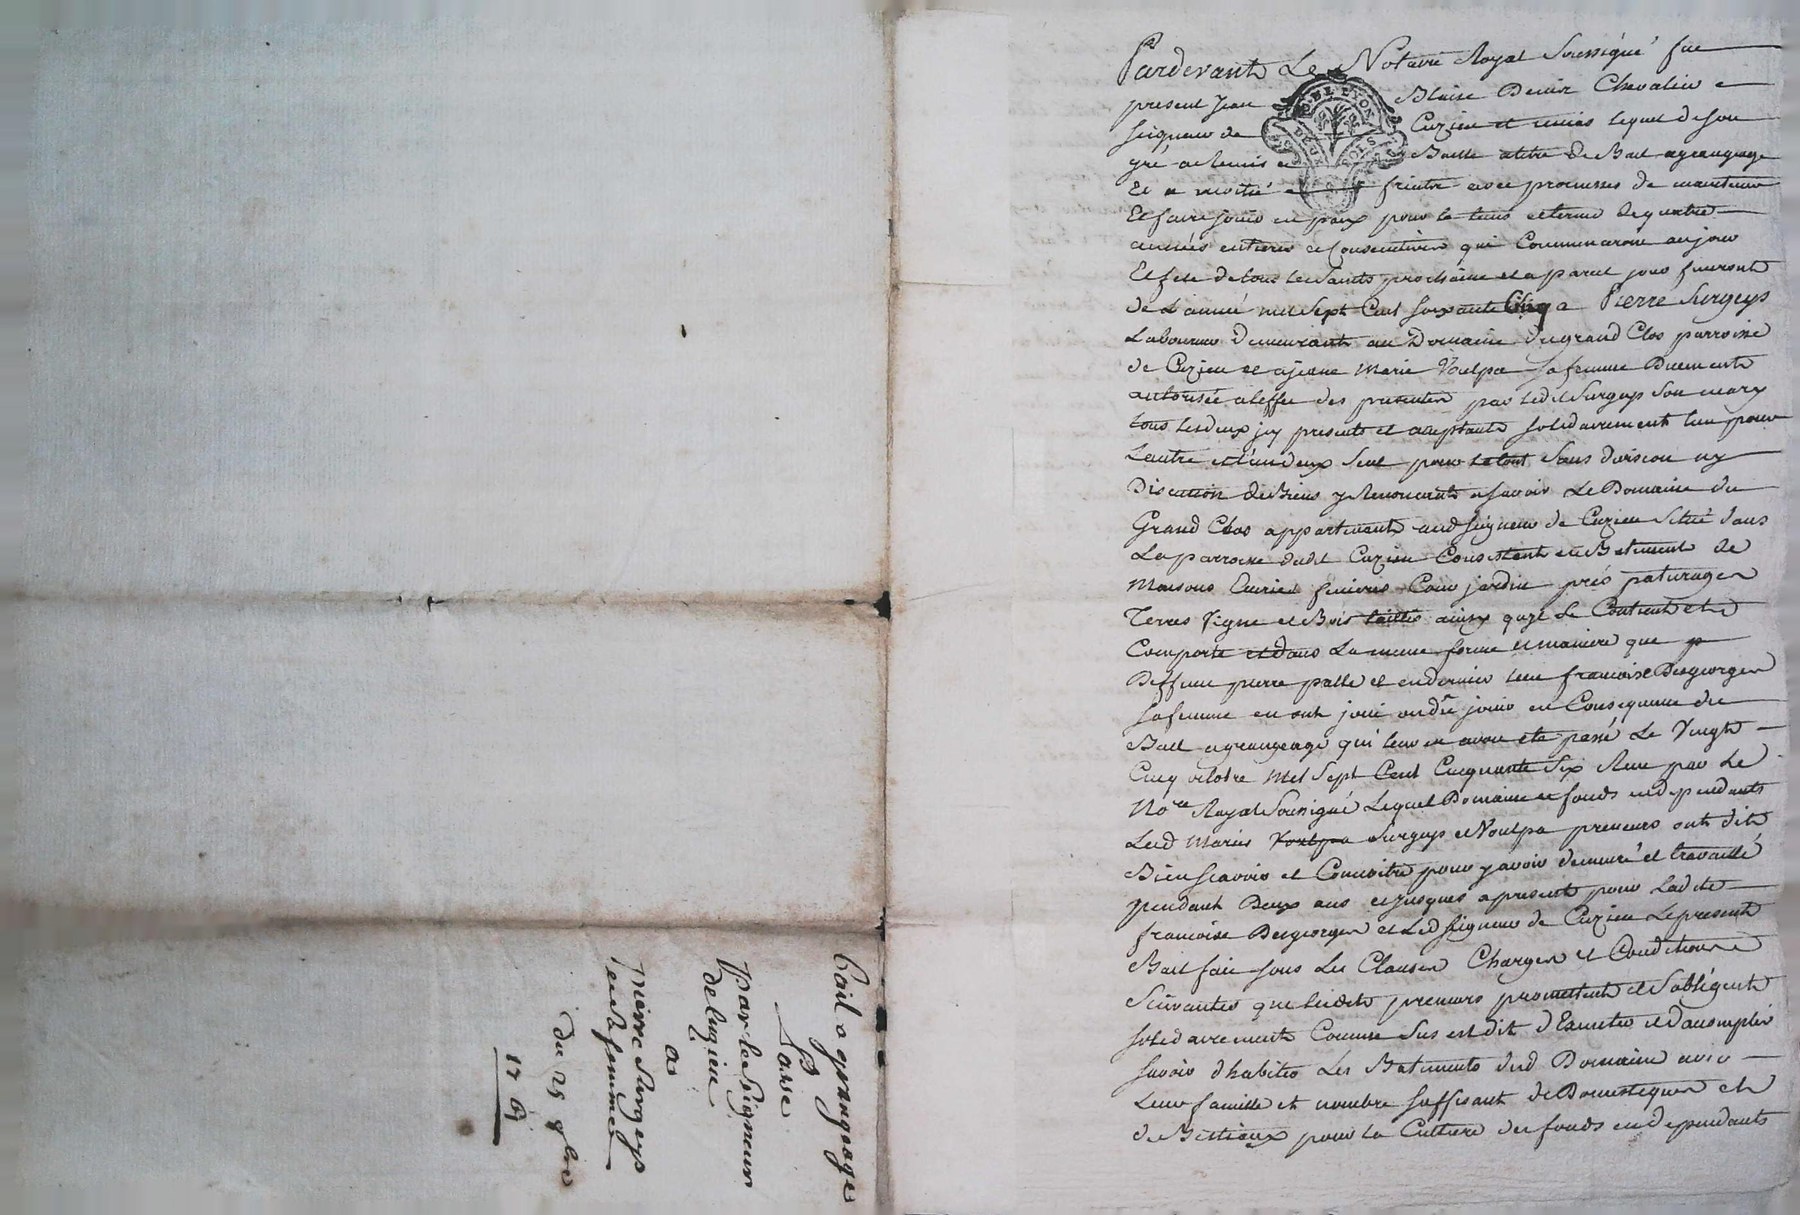 Bail a grangeage
Passé
Par le Seigneur
de Curzieu
a
pierre Surgeys
et sa femme
du 25 9bre
17
Pardevant Le Notaire Royal Soussigné fut
present Jean Blaise Denis Chevalier
Seigneur de Cuzieu et unias lequel de son
gré a remis et Baille a titre de Bail agrangeage
Et a moitié fruitz avec promesses de maintenir
Et faire jouir en paix pour le tems et terme de quatre
années entieres et Consecutives qui Commenceront au jour
Et fete de tous les Saints prochaine et a pareil jour finiront
de L'année mil Sept Cent soixante Cinq a Pierre Surgeys
Laboureur demeurant au Domaine du grand Clos parroisse
de Cuzieu et a jeane Marie Voulpa sa femme Duement
autorisée a leffet des presentes par ledit Surgeys Son mary
tous les deux icy presents et acceptants solidairement l'un pour
Lautre et l'un deux Seul pour le tout Sans division ny
Discution de Biens y Renoncants a savoir Le Domaine du
Grand Clos appartenant aud seigneur de Cuzieu Situé dans
La parroisse dudit Cuzieu Consistent en Batiment de
Maisons Ecuries fenieres Cour jardin prés paturages
Terres Vigne et Bois taillis ainsy quil Se Contient et Se
Comporte et dans La meme forme et maniere que
Deffunt pierre palle et en dernier lieu francoise Desgeorges
sa femme en ont joui ou dû jouir en Consequence du
Bail agrangeage qui leur en avoit eté passé Le Vingt
Cinq octobre Mil Sept Cent Cinquante Six Recu par Le
No.re Royal Soussigné Lequel Domaine et fonds en dependants
Led Mariés Voulpa Surgeys et Voulpa preneurs ont dit
Bien scavoir et Connoitre pour y avoir demeuré et travaillé
pendant Deux ans et jusques a present pour Ladite
francoise Desgeorges et Led seigneur de Cuzieu Le present
Bail fait sous Les Clauses Charges et Conditions
Suivantes que lesdits preneurs promettent et S'obligent
solidairement Comme Sus est dit d'Executer et d'accomplir
savoir d'habiter Les Batiments dud Domaine avec
Leur famille et nombre suffisant de Domestiques et
de Bestiaux pour la Culture des fonds en dependants